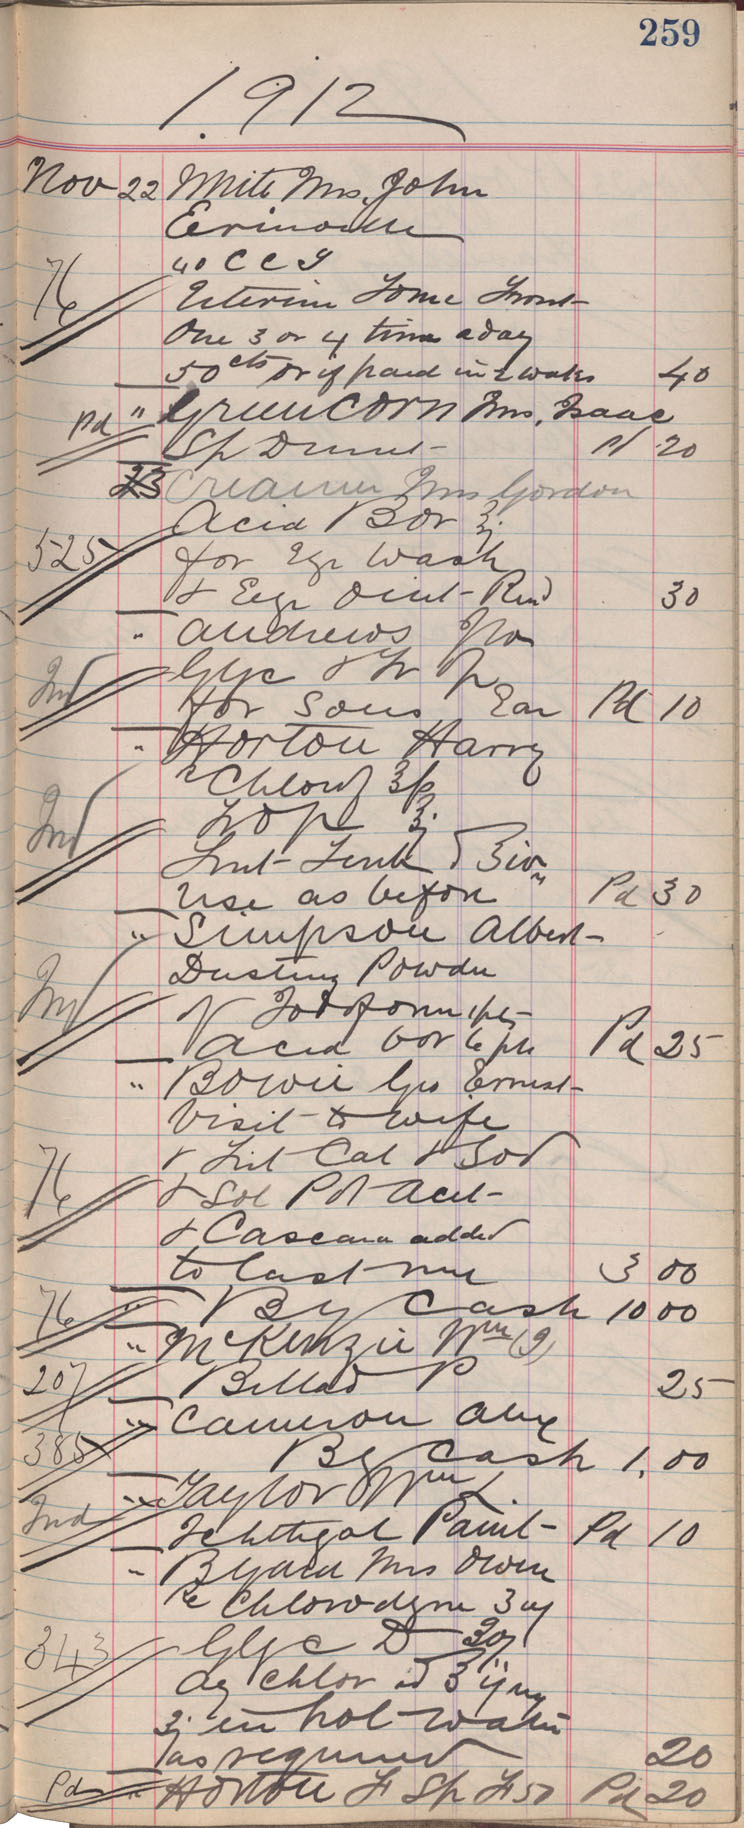 259
1912
Nov 22 White Mrs. John
Erinville
76 40 C C J
Uterine Tonic
One 3 or 4 times a day
50 cts or if paid in 2 weeks 40
Pd " Greencorn Mrs. Isaac
Sp Pd 20
23 Creamer Mrs Gordon
Acid Bor ʒj
525 for Eye Wash
& Eye Oint- 30
" Andrews
Ind Glyc & Tr
for Sons Ear Pd 10
" Horton Harry
Chlorof
Ind Tr Op ʒj
Use as before Pd 30
" Simpson Albert-
Dusting Powder
Ind Iodoform
Acid Bor Pd 25
" Bowie Geo Ernest-
Visit to wife
76 & Cal & Sod
& Sol Pot Acet-
& Cascara added
to last 3 00
76 " By Cash 10 00
" McKenzie Wm (2)
207 Bellad P 25
" Cameron Alex
385 By Cash 1.00
" Taylor Wm L
Ind Ichthyol Paint- Pd 10
" Byard Mrs Owen
Chlorodyne
343 Glyc
Aq Chlor ad
ʒj in hot water
as required 20
Pd " Horton F Sp F 50 Pd 20